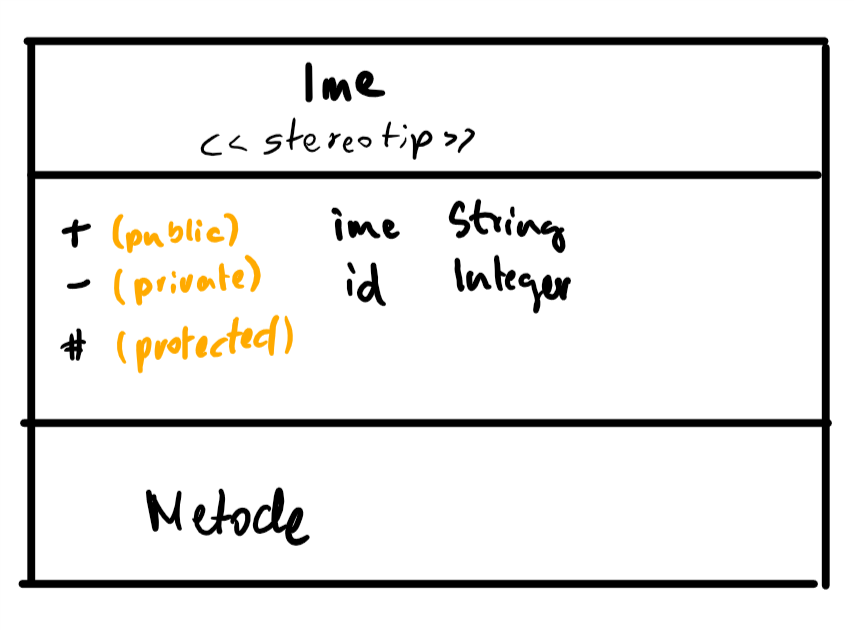 Ime
<<stereotip>>
+ (public) ime String
- (private) id Integer
# (protected)
Metode